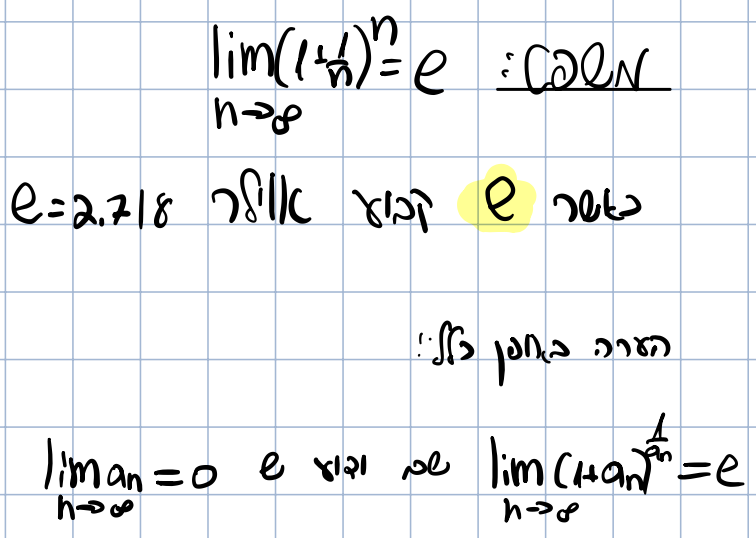 משפט: lim(1+1/n)^n = e
n→∞
כאשר e קבוע אוילר e=2.718
הערה באופן כללי:
lim(1+an)^(1/an) = e שם e lim an = 0
n→∞ n→∞